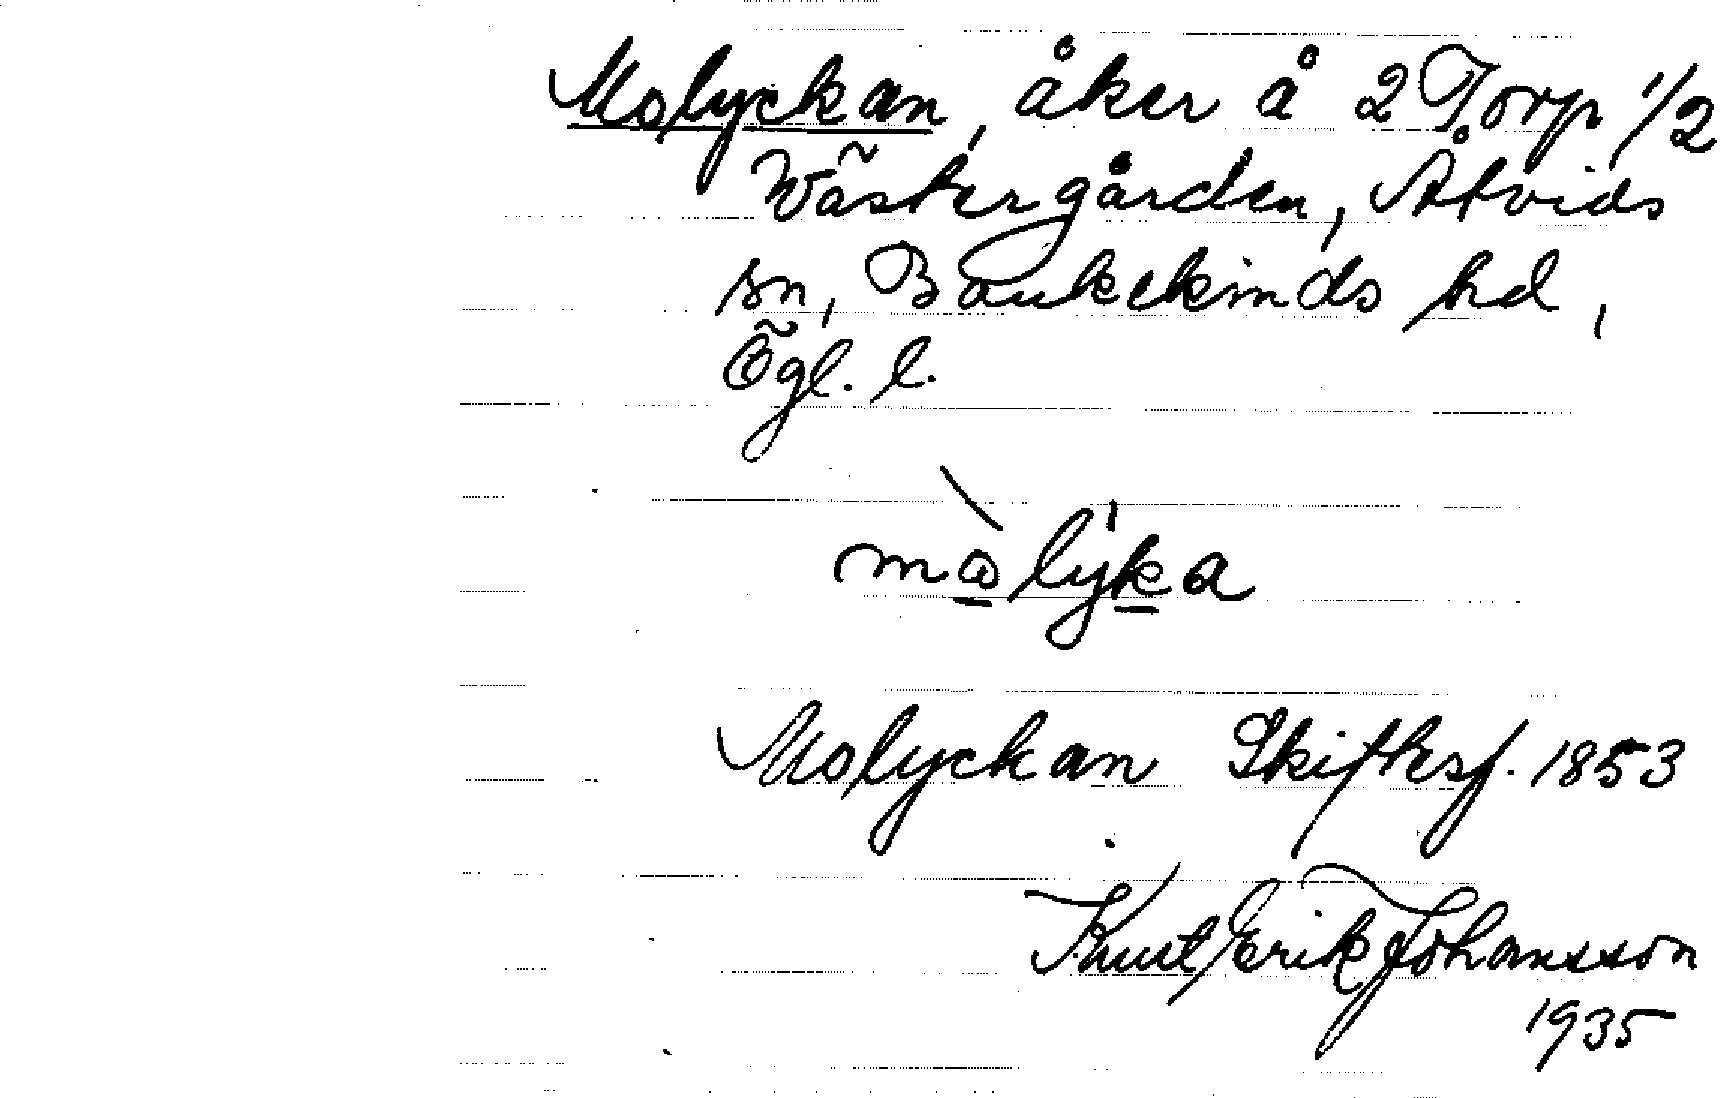 Molyckan, åker å 2 Torp 1/2
Västergården, Åtvids
sn, Bankekinds hd,
Ögl. l.
mòlyka
Molyckan Skiftesf. 1853
Knut Erik Johansson
1935